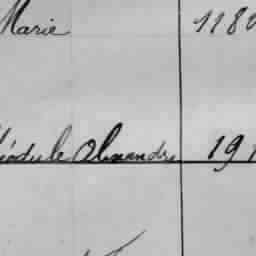 Marie 1180
Théodule Alexandre 191